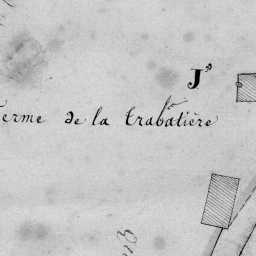 J.
ferme de la trabatière